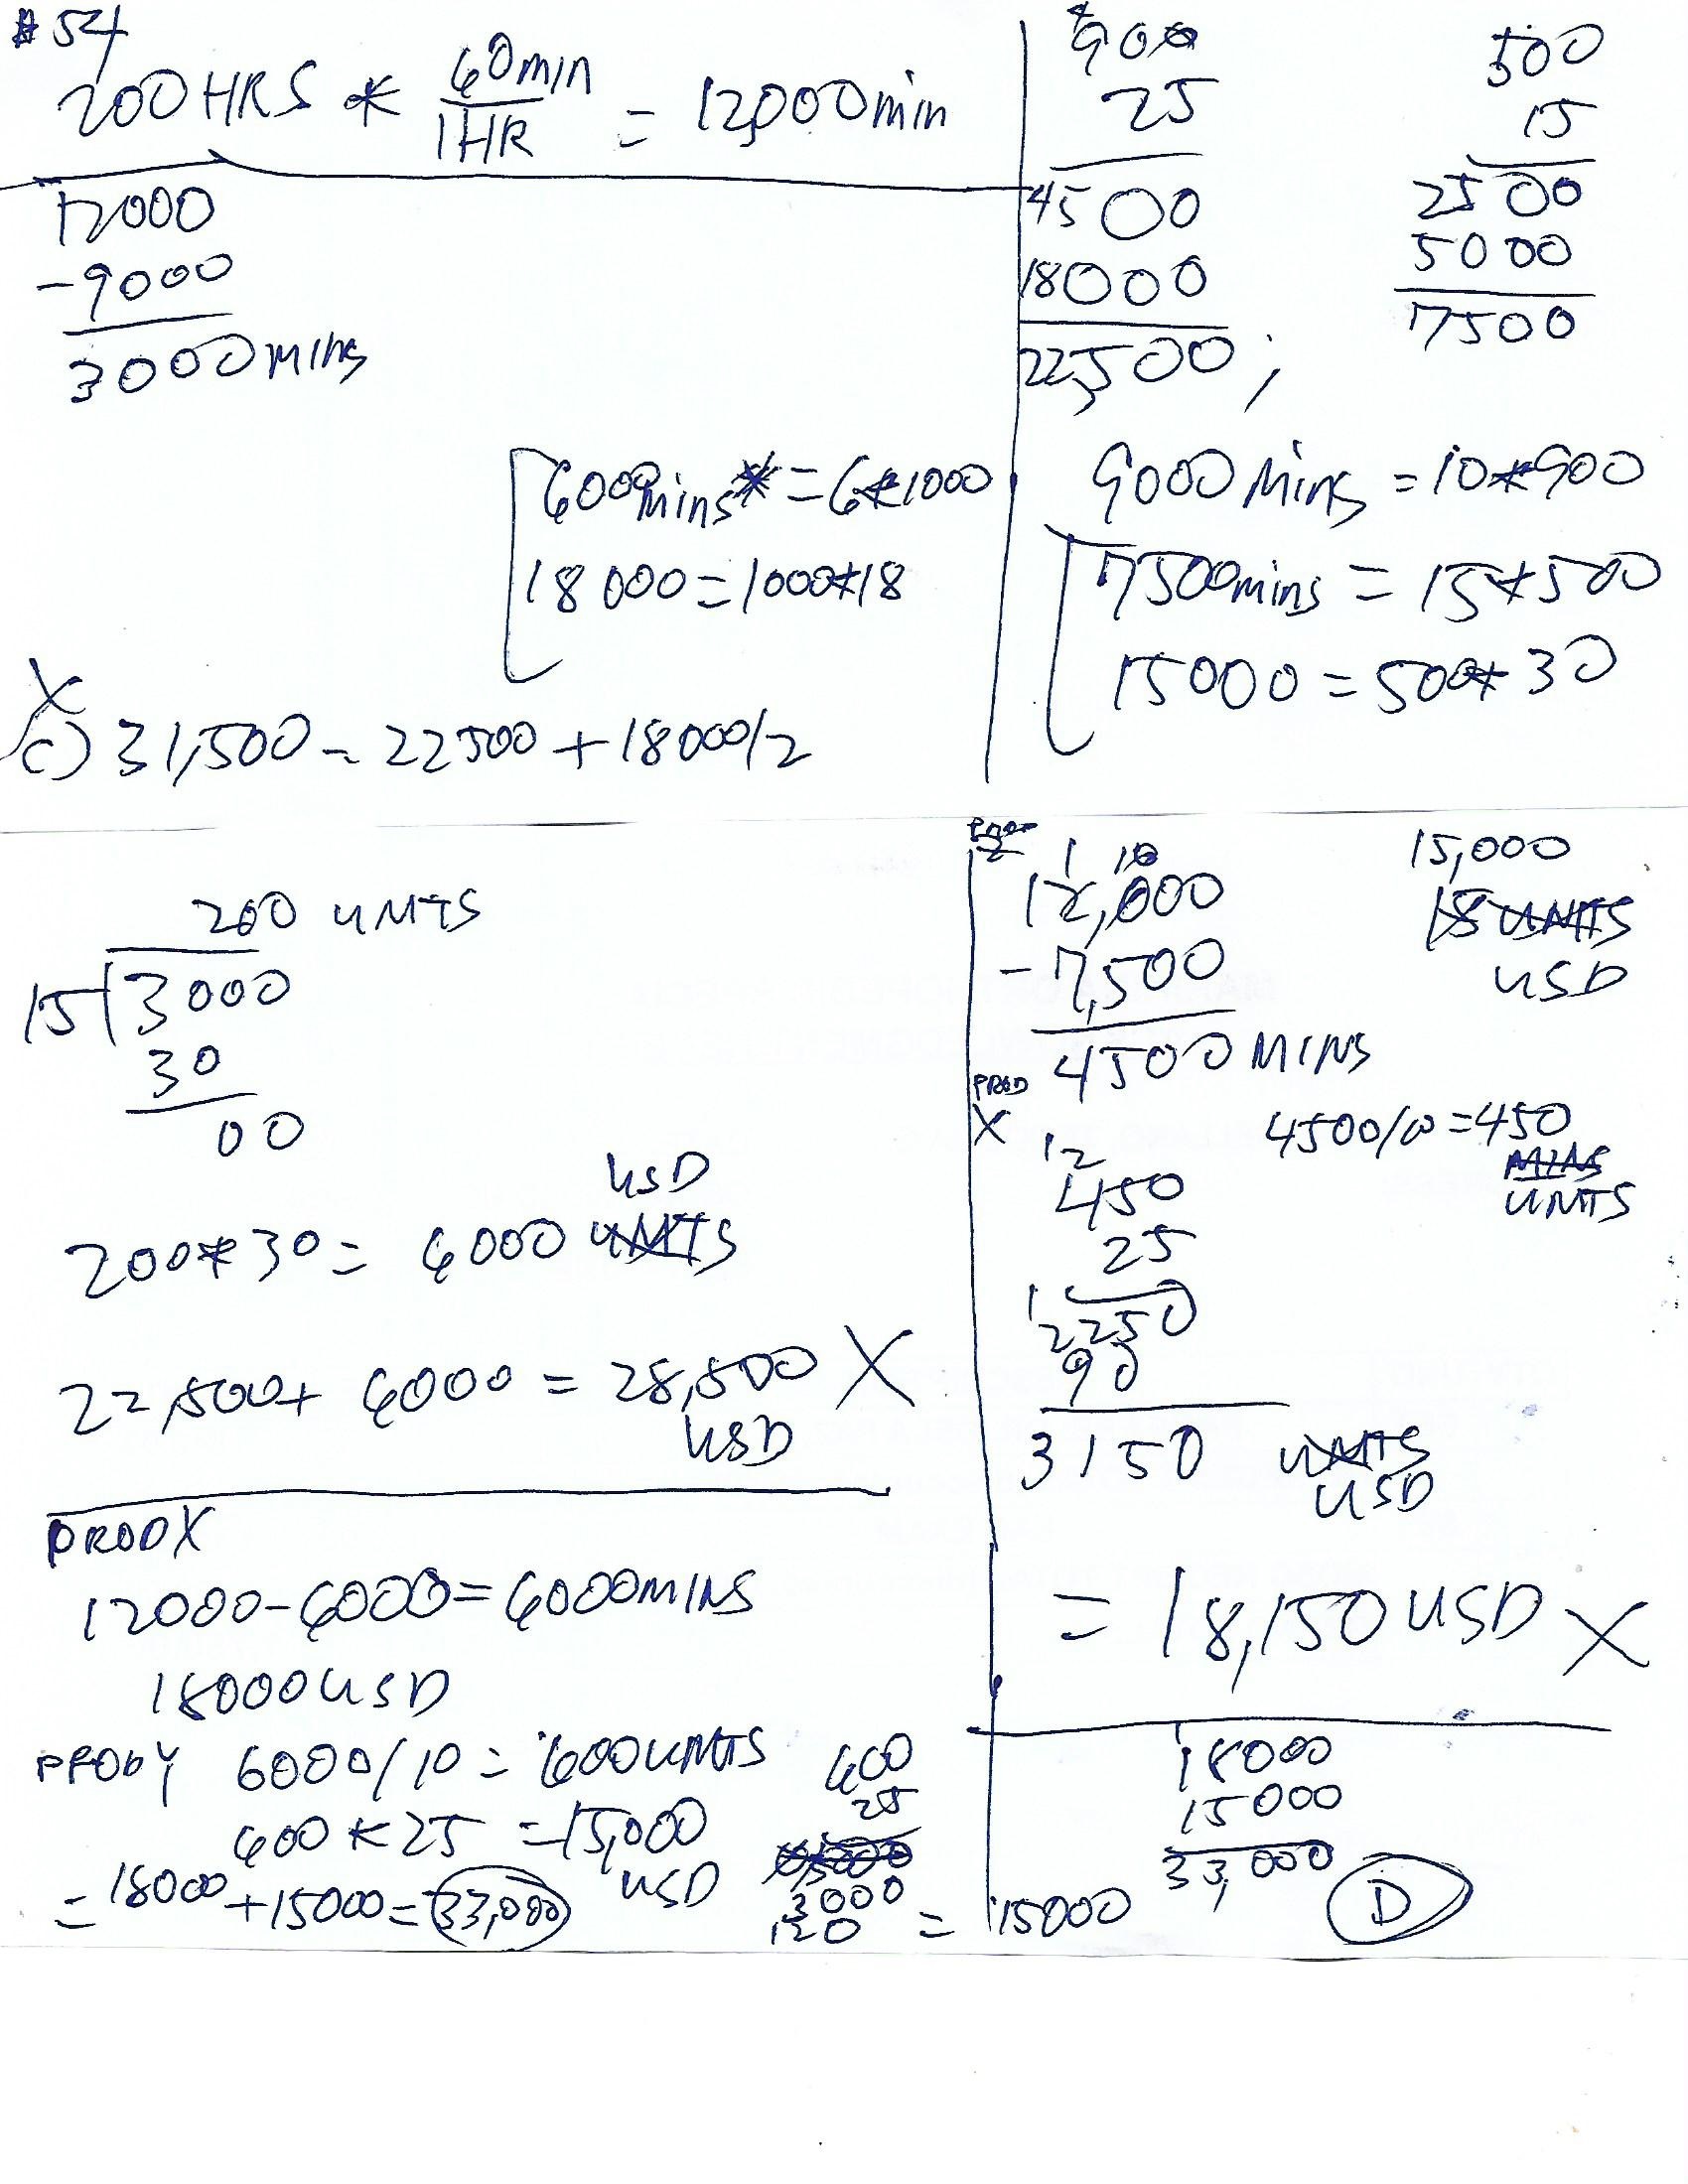 #54
200 HRS * 60min/1HR = 12,000 min
12000
-9000
3000 mins
6000mins* = 6*1000
18000 = 1000*18
X
c) 31,500 = 22500 + 18000/2
900
25
4500
18000
22,500;
500
15
2500
5000
7500
9000 Mins = 10*900
7500mins = 15*500
15000 = 500*30
200 UNITS
15 3000
30
00
200*30 = 6000 UNITS
USD
22,500 + 6000 = 28,500 X
USD
PROD X
12000-6000 = 6000MINS
18000 USD
PROD Y 6000/10 = 600 UNITS
600 * 25 = 15,000
USD
= 18000 + 15000 = 33,000
600
25
3000
120 = 15000
1 10
12,000
-7,500
4500 MINS
15,000
18 UNITS
USD
PROD
X
4500/10 = 450
MINS
UNITS
12
450
25
1
2250
90
3150 UNITS
USD
= 18,150 USD X
18000
15000
33,000
D